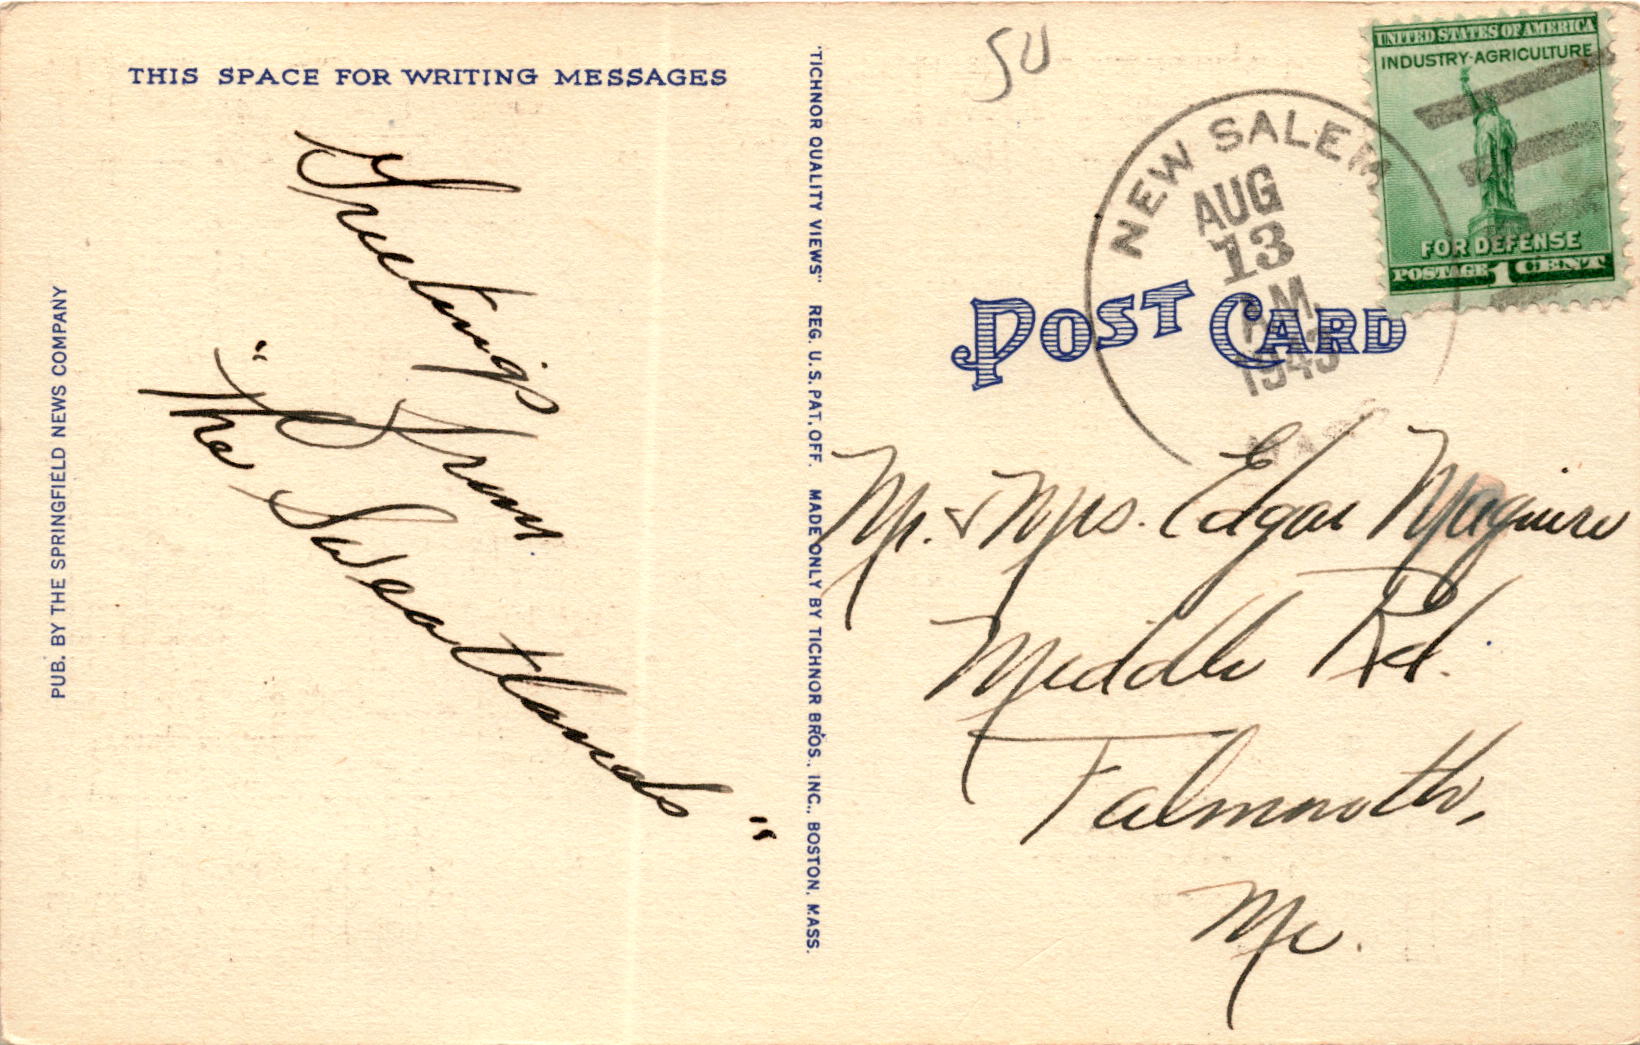 THIS SPACE FOR WRITING MESSAGES
Greetings
From
"The Sweatlands"
PUB. BY THE SPRINGFIELD NEWS COMPANY
"TICHNOR QUALITY VIEWS" REG. U. S. PAT. OFF. MADE ONLY BY TICHNOR BROS., INC., BOSTON, MASS.
50
NEW SALEM
AUG
13
A.M.
MASS
UNITED STATES OF AMERICA
INDUSTRY-AGRICULTURE
FOR DEFENSE
POSTAGE 1 CENT
POST CARD
Mr. & Mrs. Edgar Maguire
Middle Rd.
Falmouth,
Me.